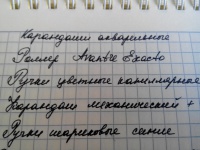 Карандаши акварельные
Роллер Avantre Exacto
Ручки цветные капиллярные
Карандаш механический +
Ручки шариковые синие